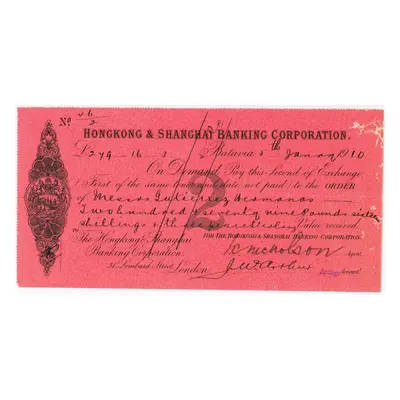 No 46/2
HONGKONG & SHANGHAI BANKING CORPORATION.
£279-16-3 Batavia 5th January 1910
On Demand Pay this Second of Exchange
(First of the same tenor and date not paid) to the ORDER
of Messrs Gutierrez Hermanos
Two hundred & seventy nine Pounds sixteen
shillings & three pence sterling Value received.
The Hongkong & Shanghai FOR THE HONGKONG & SHANGHAI BANKING CORPORATION
Banking Corporation, J C Nicholson Agent.
31 Lombard Street, London J W Arthur
Acting Account